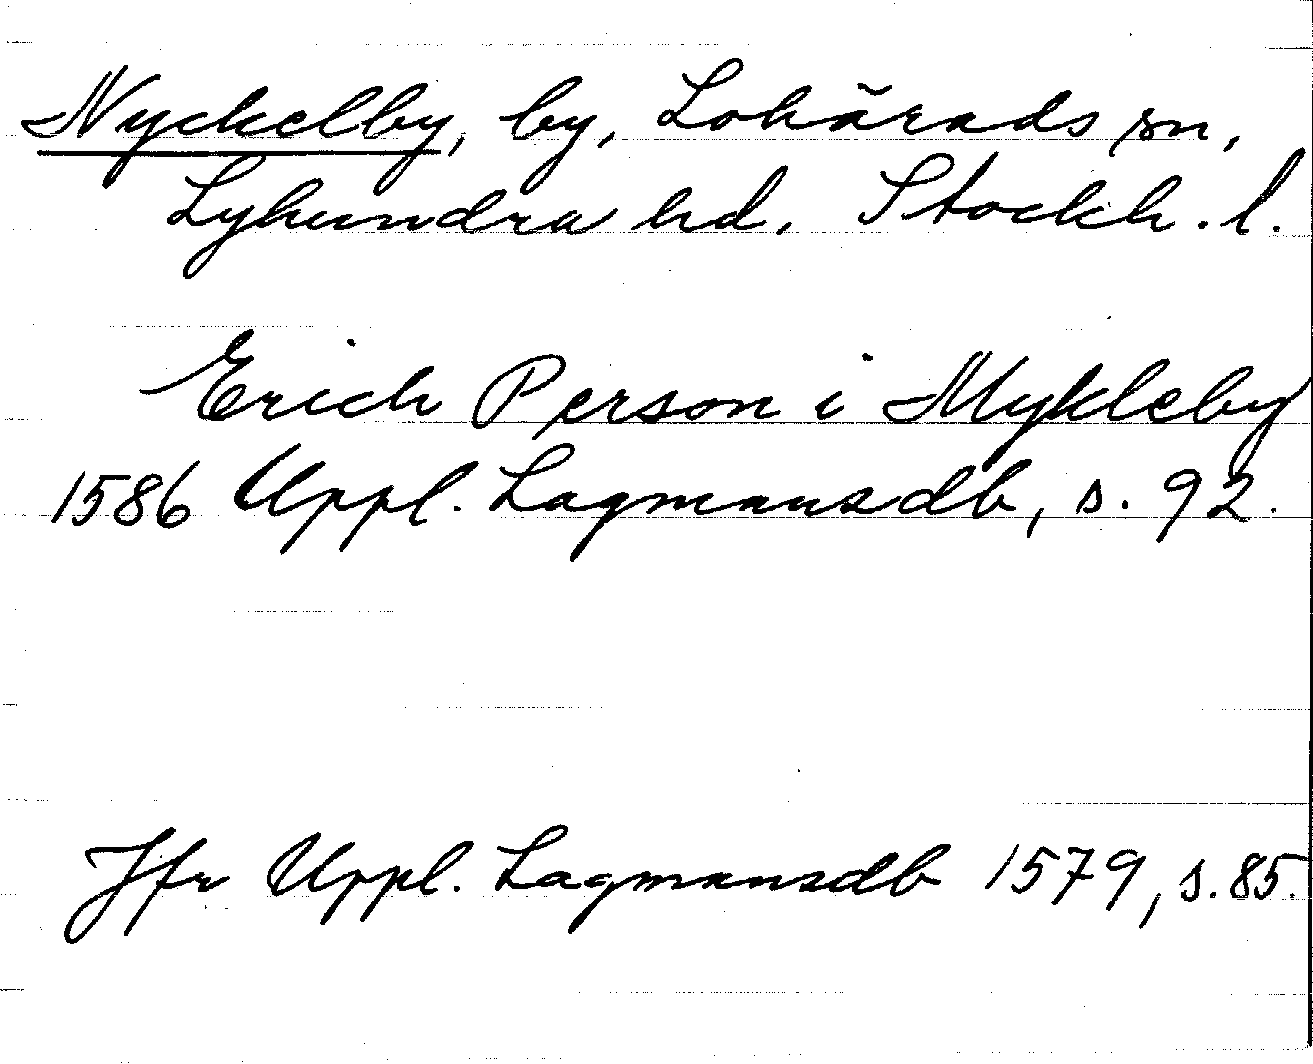 Nyckelby, by, Lohärads sn,
Lyhundra hd. Stockh. l.
Erich Person i Mykleby
1586 Uppl. Lagmansdb, s. 92.
Jfr Uppl. Lagmansdb 1579, s. 85.